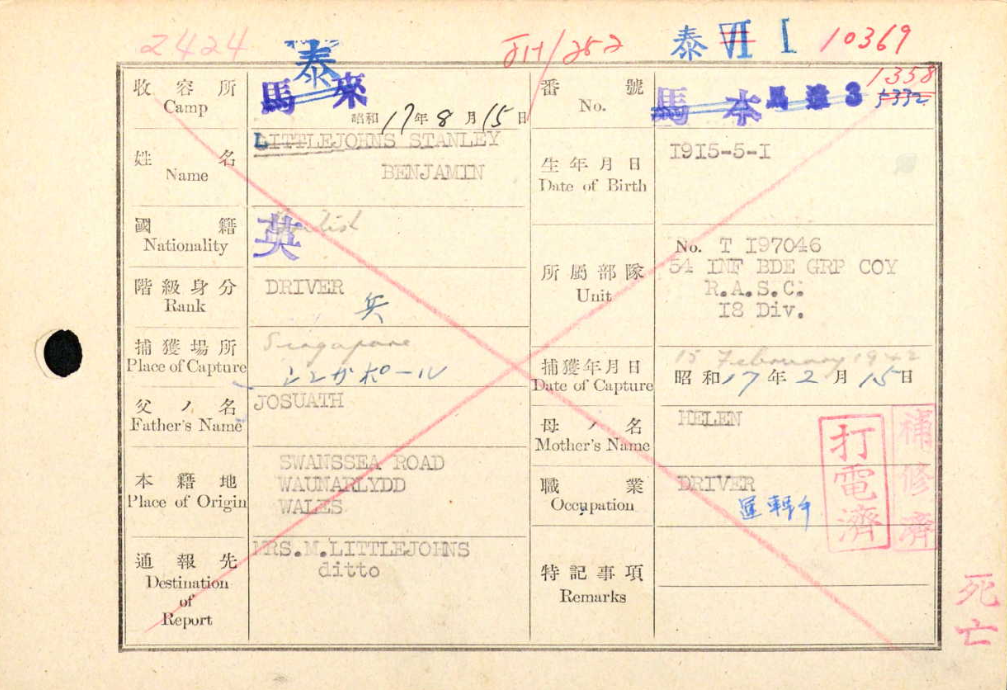 2424
泰
JH/252
泰 VII I 10369
收容所
Camp
馬 來
昭和17年8月15日
番號
No.
馬 本 馬 3
1358
姓名
Name
LITTLEJOHNS STANLEY
BENJAMIN
生年月日
Date of Birth
1915-5-1
國籍
Nationality
英
階級身分
Rank
DRIVER
兵
所屬部隊
Unit
No. T 197046
54 INF BDE GRP COY
R.A.S.C.
18 Div.
捕獲場所
Place of Capture
Singapore
シンガポール
捕獲年月日
Date of Capture
15 February 1942
昭和17年2月15日
父ノ名
Father's Name
JOSUATH
母ノ名
Mother's Name
HELEN
本籍地
Place of Origin
SWANSSEA ROAD
WAUNARLYDD
WALES
職業
Occupation
DRIVER
打電濟
補修濟
通報先
Destination
of
Report
MRS.M.LITTLEJOHNS
ditto
特記事項
Remarks
死亡